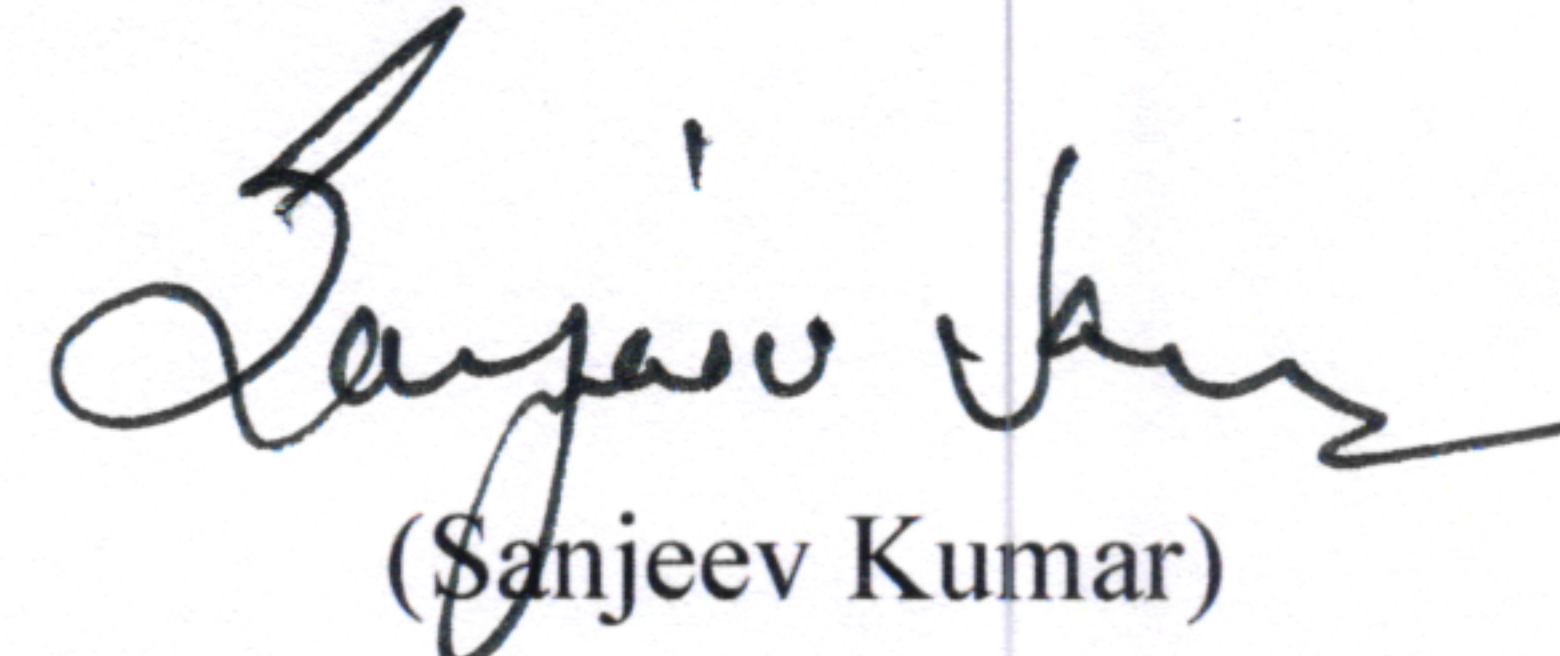 Sanjeev Kumar
(Sanjeev Kumar)